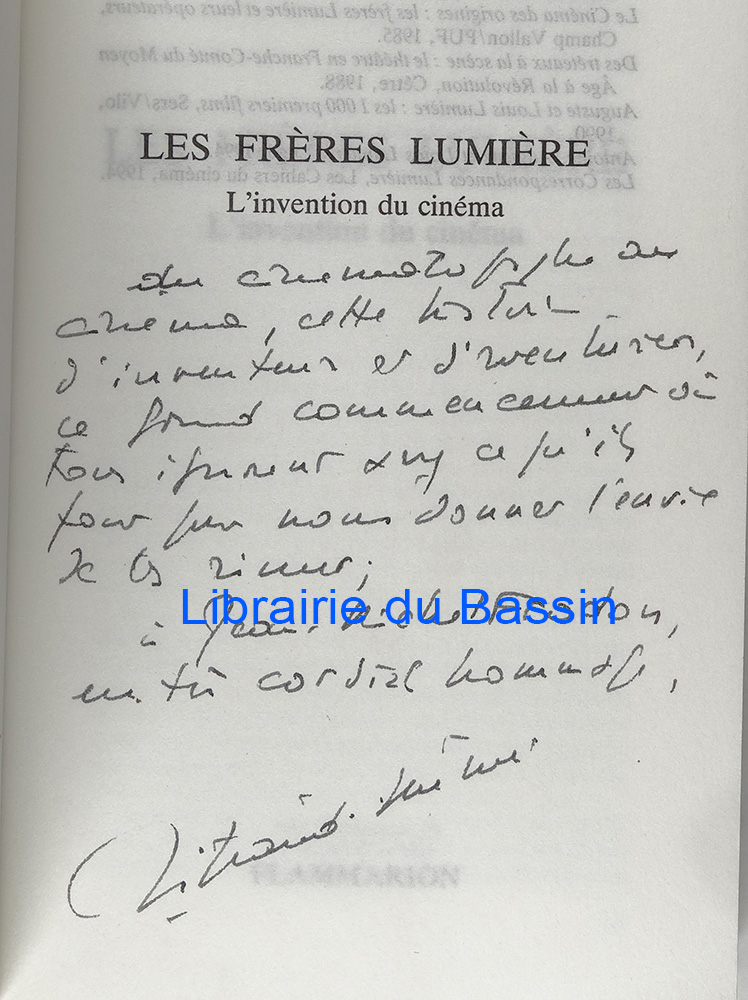 Le Cinéma des origines : les frères Lumière et leurs opérateurs,
Champ Vallon/PUF, 1985.
Des tréteaux à la scène : le théâtre en Franche-Comté du Moyen
Âge à la Révolution, Cêtre, 1988.
Auguste et Louis Lumière : les 1 000 premiers films, Sers/Vilo,
1990.
Les Correspondances Lumière, Les Cahiers du cinéma, 1994.
LES FRÈRES LUMIÈRE
L'invention du cinéma
du cinematographe au
cinema, cette histoire
d'inventeurs et d'aventuriers,
ce grand commencement où
tous ignorent ce qu'ils
font pour nous donner l'envie
de les aimer;
à Jean-Michel Frodon,
en très cordial hommage,
Librairie du Bassin
FLAMMARION